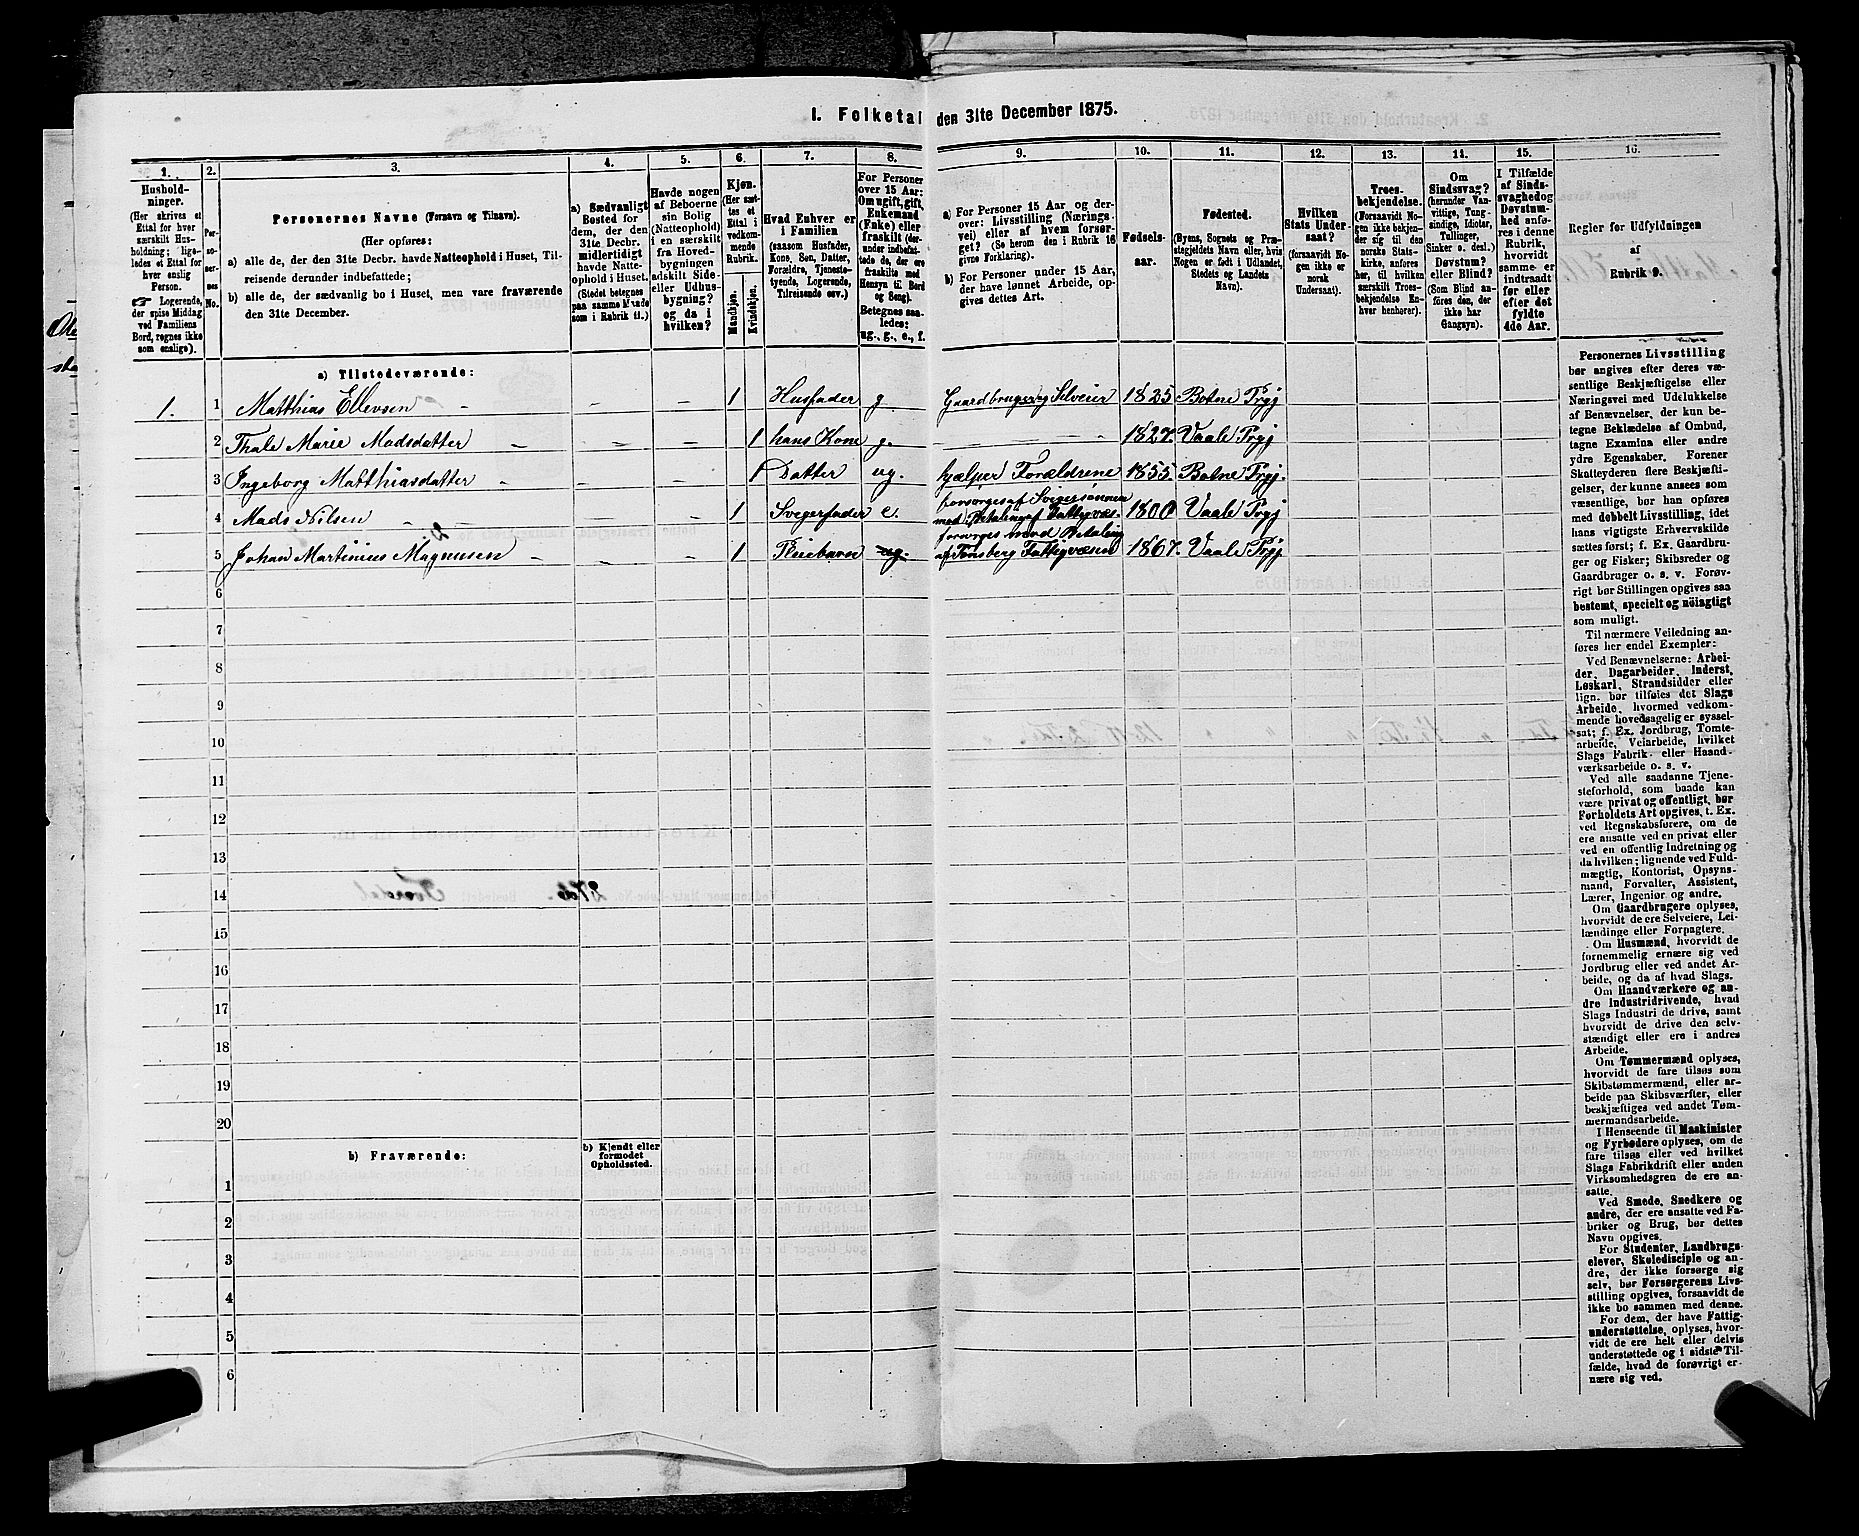 I. Folketal den 31te December 1875.
1.
Hushold-
ninger.
(Her skrives et
Ettal for hver
særskilt Hus-
holdning; liga-
ledes et Ettal for
hver enslig
Person.
Logerende,
der spise Middag
ved Familiens
Bord, regnes ikke
som enslige).
2.
Per-
so-
ner-
nes
No.
3.
Personernes Navne (Fornavn og Tilnavn).
(Her opføres:
a) alle de, der den 31te Decbr. havde Natteophold i Huset, Til-
reisende derunder indbefattede;
b) alle de, der sædvanlig bo i Huset, men vare fraværende
den 31te December.
4.
a) Sædvanligt
Bosted for
dem, der den
31te Decbr.
midlertidigt
havde Natte-
ophold i Huset
(Stedet betegnes
paa samme Maade
som i Rubrik 11.)
5.
Havde nogen
af Beboerne
sin Bolig
(Natteophold)
i en særskilt
fra Hoved-
bygningen
adskilt Side-
eller Udhus-
bygning?
og da i
hvilken?
6.
Kjøn.
(Her sæt-
tes et
Ettal i
vedkom-
mende
Rubrik.
Mandkjøn.
Kvindekjøn.
7.
Hvad Enhver er
i Familien
(saasom Husfader,
Kone, Søn, Datter,
Forældre, Tjeneste-
tyende, Logerende,
Tilreisende osv.)
8.
For Personer
over 15 Aar:
Om ugift, gift,
Enkemand
(Enke) eller
fraskilt (der-
under indbefat-
tede de, der ere
fraskilte med
Hensyn til Bord
og Seng).
Betegnes saa-
ledes:
ug., g., e., f.
9.
a) For Personer 15 Aar og der-
over: Livsstilling (Nærings-
vei) eller af hvem forsør-
get? (Se herom den i Rubrik 16
givne Forklaring).
b) For Personer under 15 Aar,
der have lønnet Arbeide, op-
gives dettes Art.
10.
Fødsels-
aar.
11.
Fødested.
(Byens, Sognets og Præ-
stegjeldets Navn, eller, hvis
Nogen er født i Udlandet,
Stedets og Landets
Navn).
12.
Hvilken
Stats Under-
saat?
(forsaavidt No-
gen ikke er
norsk
Undersaat).
13.
Troes-
bekjendelse.
(Forsaavidt No-
gen ikke bekjen-
der sig til den
norske Stats-
kirke, anføres
her, til hvilken
særskilt Troes-
bekjendelse En-
hver henhører).
14.
Om
Sindssvag?
(herunder Van-
vittige, Tung-
sindige, Idioter,
Tullinger,
Sinker o. desl.).
Døvstum?
eller Blind?
(Som Blind an-
føres den, der
ikke har
Gangsyn).
15.
I Tilfælde
af Sinds-
svaghed og
Døvstum-
hed anfø-
res i denne
Rubrik,
hvorvidt
samme er
indtraadt
før eller
efter det
fyldte
4de Aar.
16.
Regler for Udfyldningen
af
Rubrik 9.
a) Tilstedeværende:
1. 1 Matthias Ellevsen - - - 1 Husfader g Gaardbruger og Selveier 1825 Botne Prgj
2 Thale Marie Madsdatter - - - 1 hans Kone g. - - - 1827. Vaale Prgj
3 Ingeborg Matthiasdatter - - - 1 Datter ug. hjælper Forældrene 1855 Botne Prgj.
4 Mads Nilsen - - - - 1 Svegerfader e. forsørges af Svigersønnen
med Betaling af Fattigvæs. 1800 Vaale Prgj
5 Johan Martinius Magnusen - - - 1 Pleiebarn ug. forsørges mod Betaling
af Tønsberg Fattigvæsen 1867. Vaale Prgj.
6
7
8
9
10
11
12
13
14
15
16
17
18
19
20
b) Fraværende:
b) Kjendt eller
formodet
Opholdssted.
1
2
3
4
5
6
Personernes Livsstilling
bør angives efter deres væ-
sentlige Beskjæftigelse eller
Næringsvei med Udelukkelse
af Benævnelser, der kun be-
tegne Beklædelse af Ombud,
tagne Examina eller andre
ydre Egenskaber. Forener
Skatteyderen flere Beskjæfti-
gelser, der kunne ansees som
væsentlige, bør han opføres
med dobbelt Livsstilling, idet
hans vigtigste Erhvervskilde
sættes først; f. Ex. Gaardbru-
ger og Fisker; Skibsreder og
Gaardbruger o. s. v. Forøv-
rigt bør Stillingen opgives saa
bestemt, specielt og nöiagtigt
som muligt.
Til nærmere Veiledning an-
føres her endel Exempler:
Ved Benævnelserne: Arbei-
der, Dagarbeider, Inderst,
Løskarl, Strandsidder eller
lign. bør tilføies det Slags
Arbeide, hvormed vedkom-
mende hovedsagelig er syssel-
sat; f. Ex. Jordbrug, Tomte-
arbeide, Veiarbeide, hvilket
Slags Fabrik- eller Haand-
værksarbeide o. s. v.
Ved alle saadanne Tjene-
steforhold, som baade kan
være privat og offentligt, bør
Forholdets Art opgives, t. Ex.
ved Regnskabsførere, om de
ere ansatte ved en privat eller
ved en offentlig Indretning og
da hvilken; lignende ved Fuld-
mægtig, Kontorist, Opsyns-
mand, Forvalter, Assistent,
Lærer, Ingeniør og andre.
Om Gaardbrugere oplyses,
hvorvidt de ere Selveiere, Lei-
lændinge eller Forpagtere.
Om Husmænd, hvorvidt de
fornemmelig ernære sig ved
Jordbrug eller ved andet Ar-
beide, og da af hvad Slags.
Om Haandværkere og an-
dre Industridrivende, hvad
Slags Industri de drive, samt
hvorvidt de drive den selv-
stændigt eller ere i andres
Arbeide.
Om Tømmermænd oplyses,
hvorvidt de fare tilsøs som
Skibstømmermænd, eller ar-
beide paa Skibsværfter, eller
beskjæftiges ved andet Tøm-
mermandsarbeide.
I Henseende til Maskinister
og Fyrbødere oplyses, om de
fare tilsøs eller ved hvilket
Slags Fabrikdrift eller anden
Virksomhedsgren de ere an-
satte.
Ved Smede, Snedkere og
andre, der ere ansatte ved Fa-
briker og Brug, bør dettes
Navn opgives.
For Studenter, Landbrugs-
elever, Skoledisciple og an-
dre, der ikke forsørge sig
selv, bør Forsørgerens Livs-
stilling opgives, forsaavidt de
ikke bo sammen med denne.
For dem, der have Fattig-
understøttelse, oplyses, hvor-
vidt de ere helt eller delvis
understøttede og i sidste Til-
fælde, hvad de forøvrigt er-
nære sig ved.